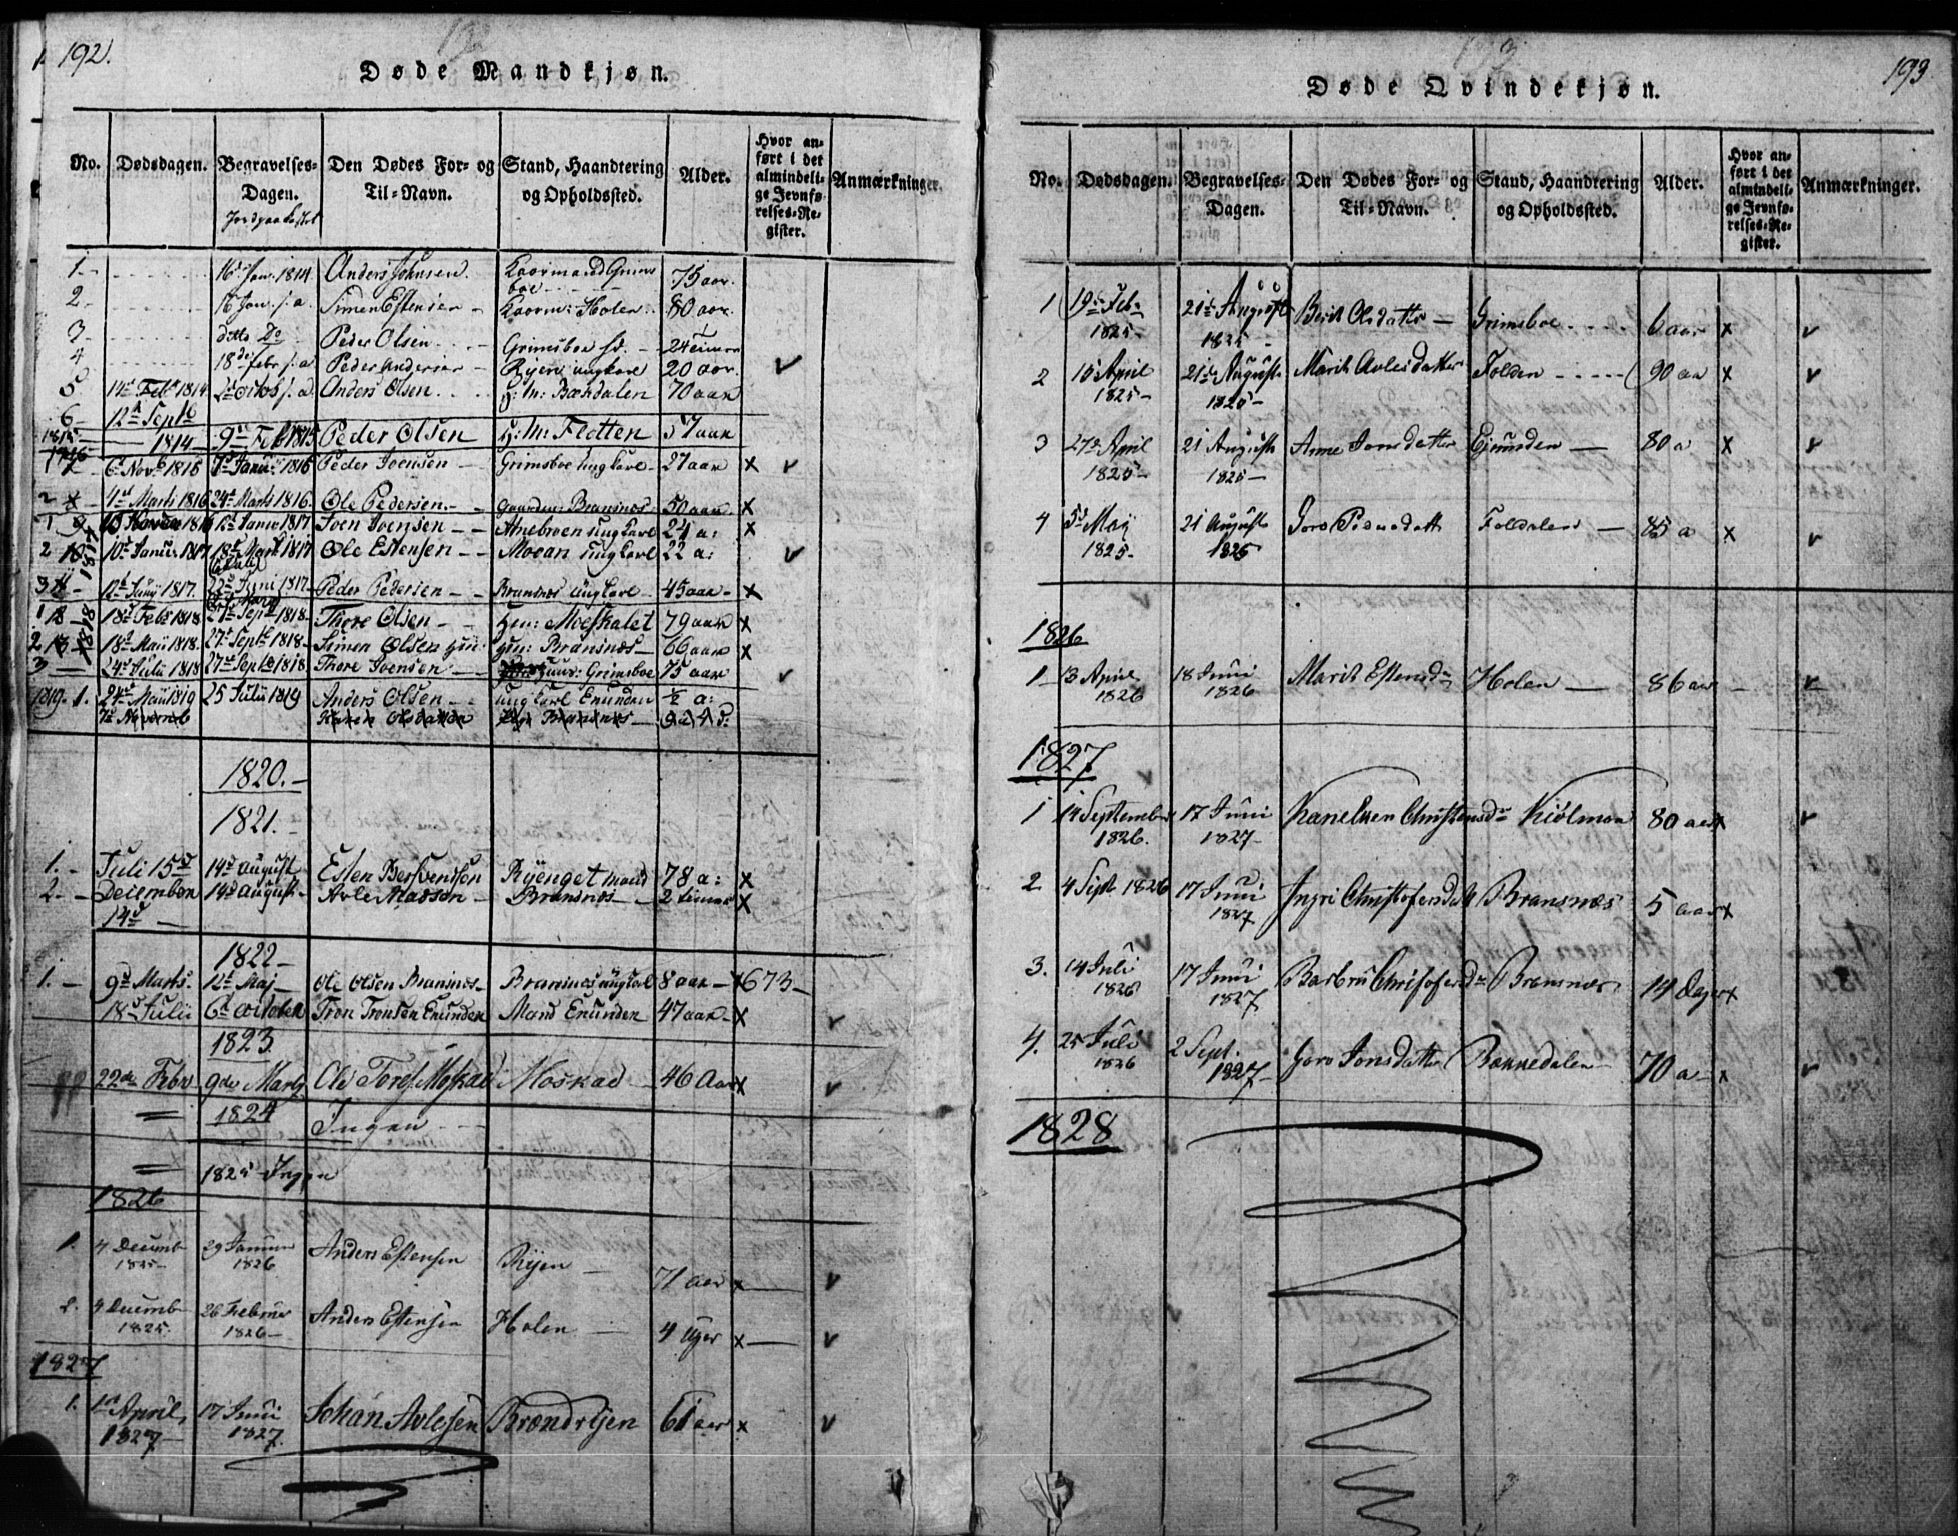 192.
Døde Mandkjøn.
No. Dødsdagen. Begravelses-Dagen. Den Dødes For- og Til-Navn. Stand, Haandtering og Opholdssted. Alder. Hvor anført i det almindelige Jevnførelses-Register. Anmærkninger.
Jordpaakastet
1 16 Jan. 1814 Anders Johnsen Grimsboe 75 aar.
2 16 Jan. s. a. Simen Estensen Holen 80 aar.
3 ditto Do Peder Olsen Grimsboe 24 timer
4 18de febr s. a. Peder Andersen Ryen ungkarl 20 aar. v
5 14de Febr 1814 s. a. Anders Olsen H: M: Bækdalen 70 aar
6 12te Septb
1815 1814 9de Feb 1815 Peder Olsen H: M: Flotten 57 aar
1816
1 6te Novb 1815 Janu: 1816 Peder Joensen Grimsboe ungkarl 27 aar x v
2 4de Marts 1816 24de Marts 1816. Ole Pedersen Gaardm: Bransnos 50 aar x
1 12te Janur 1817 Joen Joensen Ungkarl 24 a: x
2 10de Janur 1817 18de Marts 1817 Ole Estensen Moean Ungkarl 22 a: v
1817
3 12te Juny 1817. 22de Juni 1817 Peder Pedersen Bransnos Ungkarl 45 aar x
1 18de Febr 1818 27de Septb 1818 Thore Olsen Moeskalet 79 aar x
1818
2 18de Maii 1818 27de Septb 1818 Simen Olsen Huu: Bransnos 66 aar x
3 24de Julii 1818 27de Septb 1818 Thore Joensen Huus: Grimsboe 75 aar v
1819. 1. 24de Maii 1819 25 Julii 1819 Anders Olsen ungkarl Enunden ½ a:
7de Novemb Karen Olsdatter Bransnos
1820.
1821.
1. Juli 15d 14d August Esten Berswendsen Ryenget Mand 78 a: x
2. December 14d August Avle Madsøn Bransnos 2 timer x
14d
1822
1. 9de Marts 12te Maj Ole Olsen Bransnos Bransnos ungkarl 8 aar 1673
18de Julii 6te October Tron Tronsen Enunden Mand Enunden 47 aar x v
1823.
22de Febr 9de Marts Ole Toresen Moskad Moskad 46 Aar x v
1824 Ingen
1825 Ingen
1826
1. 4 Decemb 29 Januar Anders Estensen Ryen 71 aar x v
1825 1826
2. 4 Decemb 26 Februar Anders Estensen Holen 4 Uger x v
1825. 1826
1827
1. 1st April 17 Juni Johan Avlesen Brændryen 61 aar x v
1827 1827.
193
Døde Qvindekjøn.
No. Dødsdagen. Begravelses-Dagen. Den Dødes For- og Til-Navn. Stand, Haandtering og Opholdssted. Alder. Hvor anført i det almindelige Jevnførelses-Register. Anmærkninger.
1 19de Feb. 21de August Berit Olsdatter Grimsboe 6 aar x v
1825 1825
2 April 21de August Marit Avlesdatter Folden 90 aar x v
1825 1825
3 27de April 21 August Anne Jonsdatter Ejnunden 80 a x v
1825 1825
4 5de May 21 August Goro Folldalen 85 a x v
1825 1825
1826
1 13 April 18 Juni Marit Estensdr Holen 86 aar v
1826 1826
1827
1 14 September 17 Juni Karelisen Christensdr Kiølmoa 80 aar x v
1826. 1827
2 4 Sept 1826 17 Juni Ingri Christofersdatt Bransnæs 5 aar x
1827
3. 14 Juli 17 Juni Barbru Christofersdr Bransnæs 14 Dager x
1826 1827
4. 25 Juli 2 Sept. Goro Jonsdatter Bækkedalen 70 a x v
1826 1827
1828